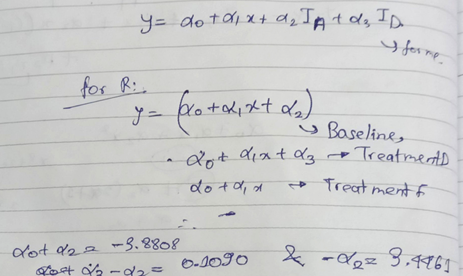 y = α0 + α1x + α2 IA + α3 ID
↳ for me.
for R:-
y = (α0 + α1x + α2)
↳ Baseline,
· α0 + α1x + α3 → Treatment D
α0 + α1x → Treatment F
∴ -
α0 + α2 = -3.8808
α0 + α2 - α2 = 0.1090 & -α2 = 3.4461